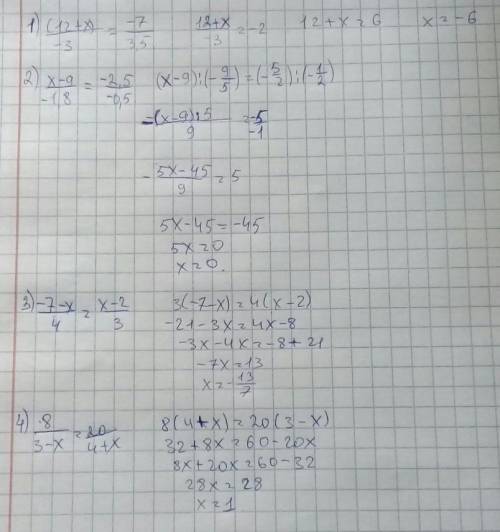 1) (12+x)/-3 = -7/3,5   12+x/-3 = -2   12+x=6   x=-6
2) x-9/-1,8 = -2,5/-0,5   (x-9):(-9/5)=(-5/2):(-1/2)
-(x-9)·5/9 = -5/-1
-5x-45/9 = 5
5x-45=-45
5x=0
x=0.
3) -7-x/4 = x-2/3   3(-7-x)=4(x-2)
-21-3x=4x-8
-3x-4x=-8+21
-7x=13
x=-13/7
4) 8/3-x = 20/4+x   8(4+x)=20(3-x)
32+8x=60-20x
8x+20x=60-32
28x=28
x=1